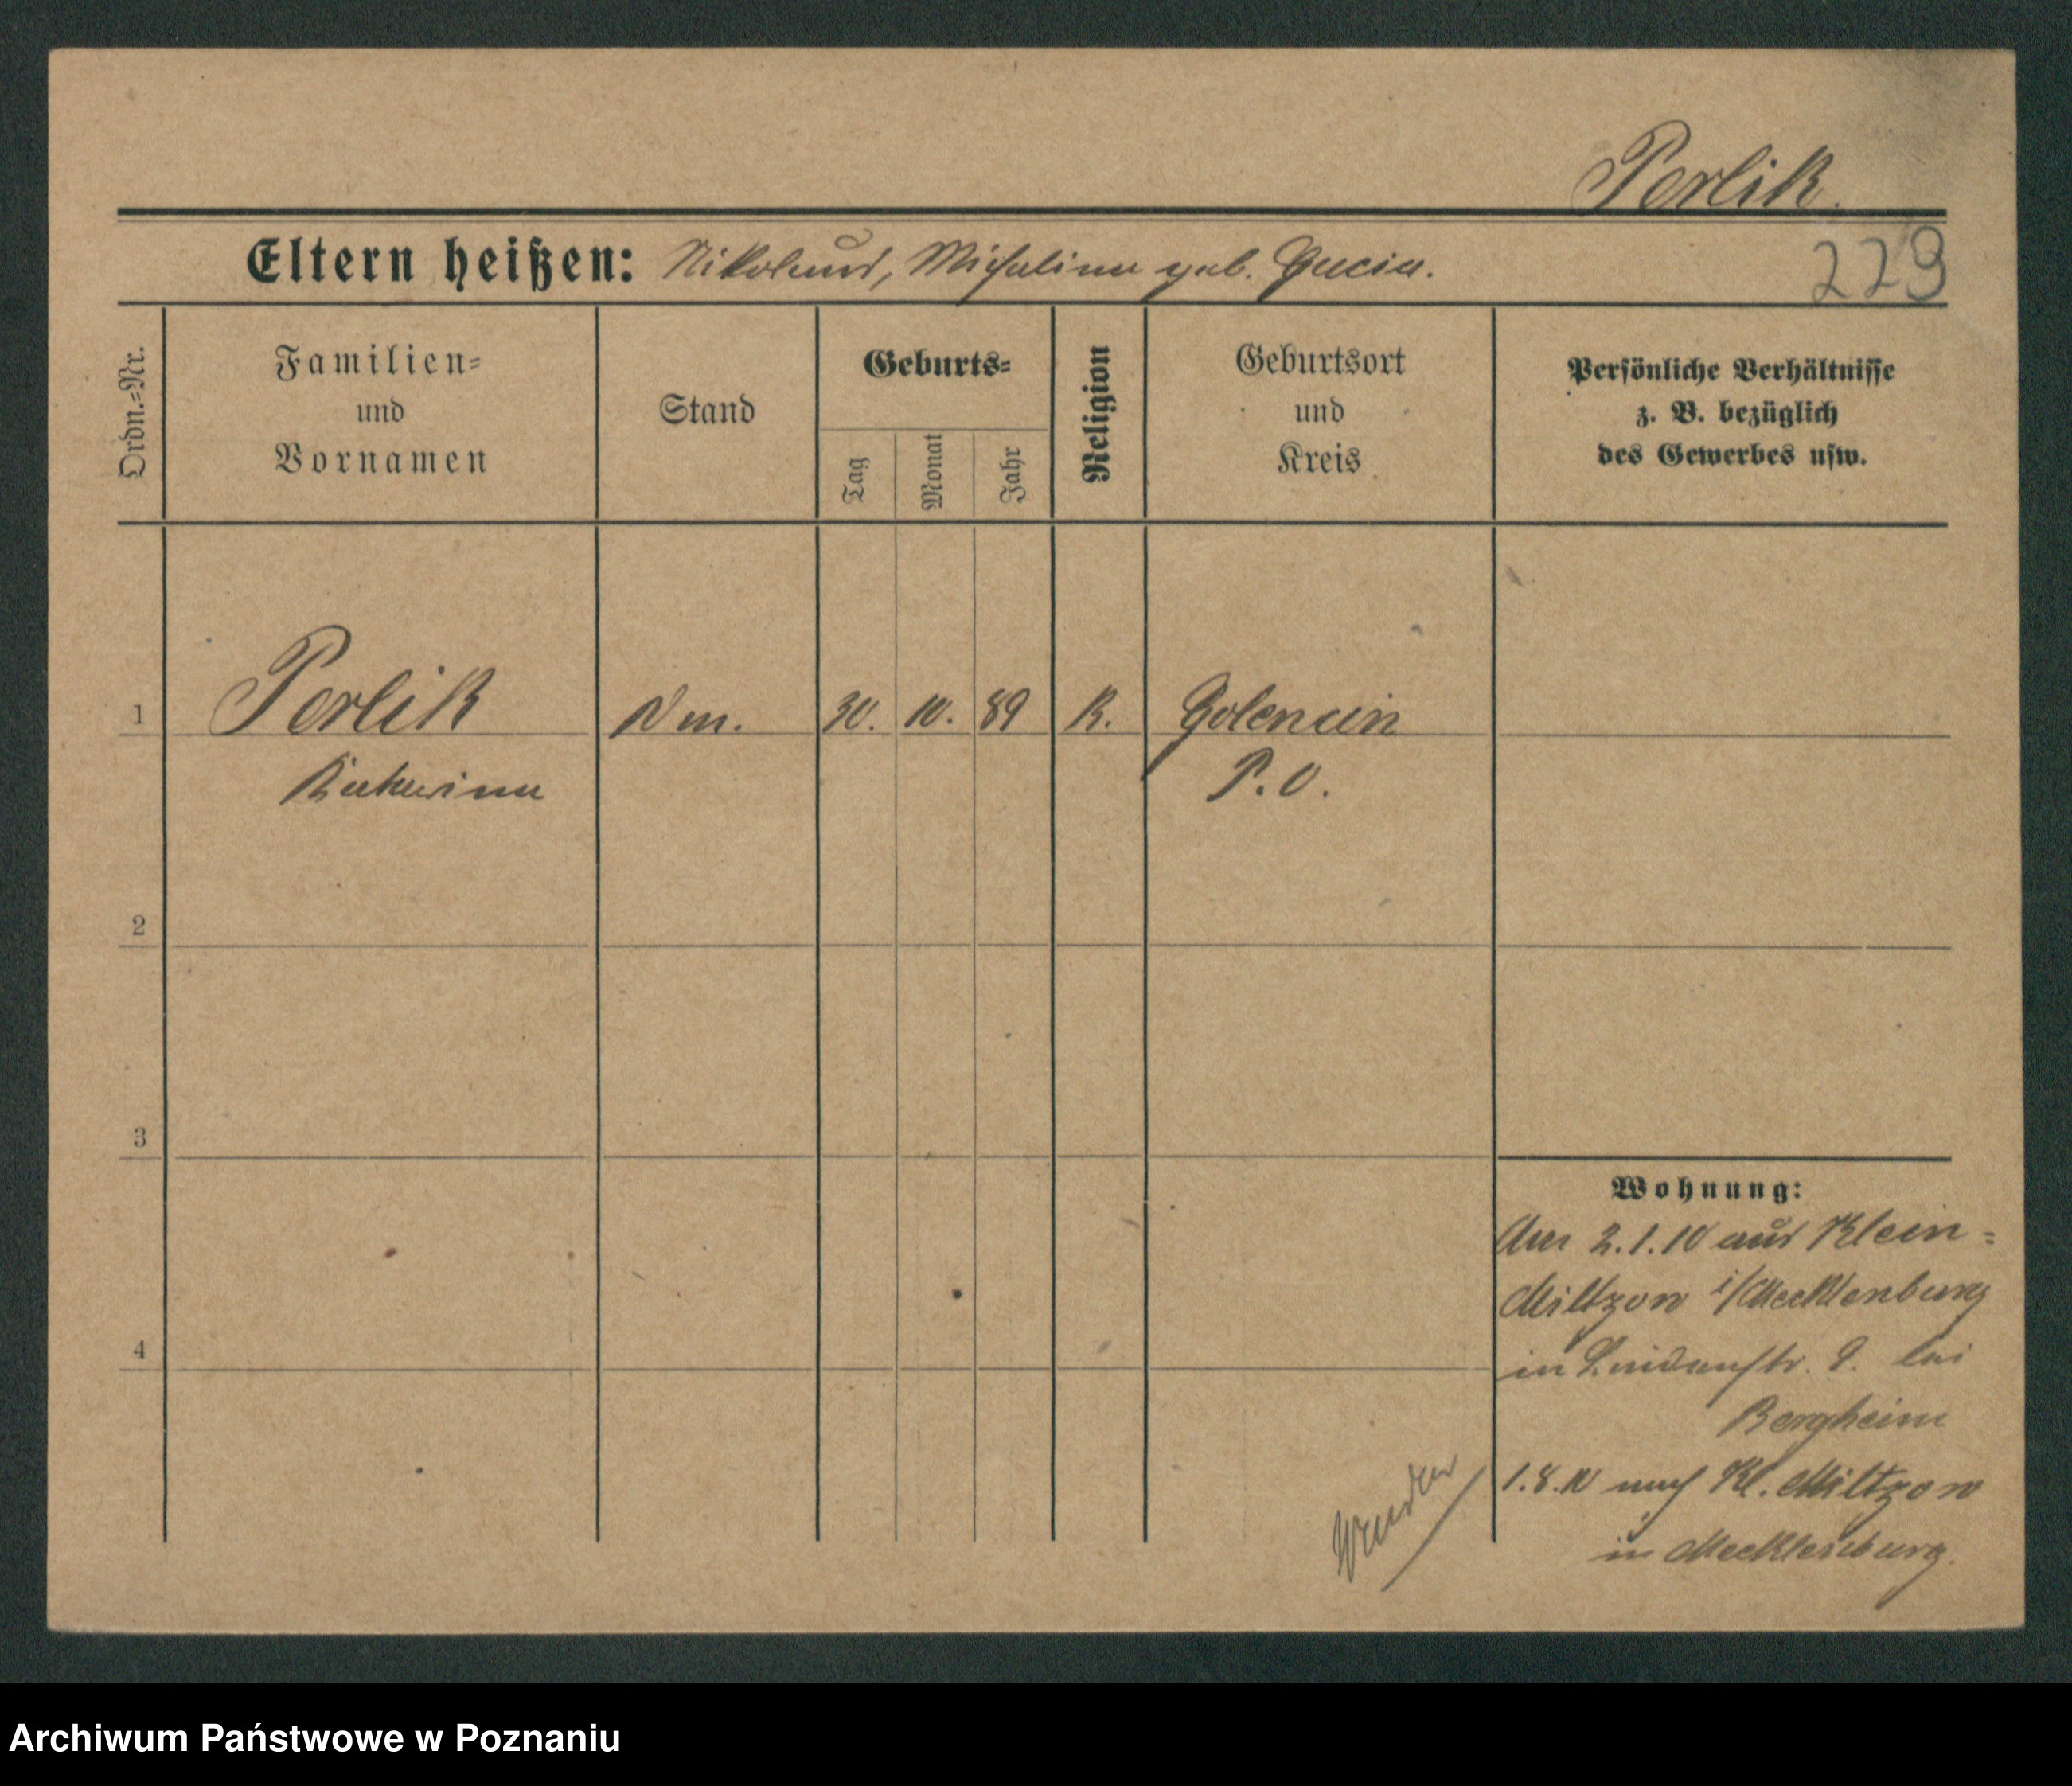 Perlik.
Eltern heißen: Nikolaus, Michalina geb. Gucia.
229
Ordn.-Nr.
Familien-
und
Vornamen
Stand
Geburts-
Tag
Monat
Jahr
Religion
Geburtsort
und
Kreis
Persönliche Verhältnisse
z. B. bezüglich
des Gewerbes usw.
1 Perlik 30. 10. 89 K. Golencin
Katarina P. O.
2
3
4
Wohnung:
Am 2.1.10 aus Klein-
Miltzow i/Mecklenburg
in Lindenstr. 9. bei
Bergheim
1.8.10 nach Kl. Miltzow
in Mecklenburg.
Archiwum Państwowe w Poznaniu